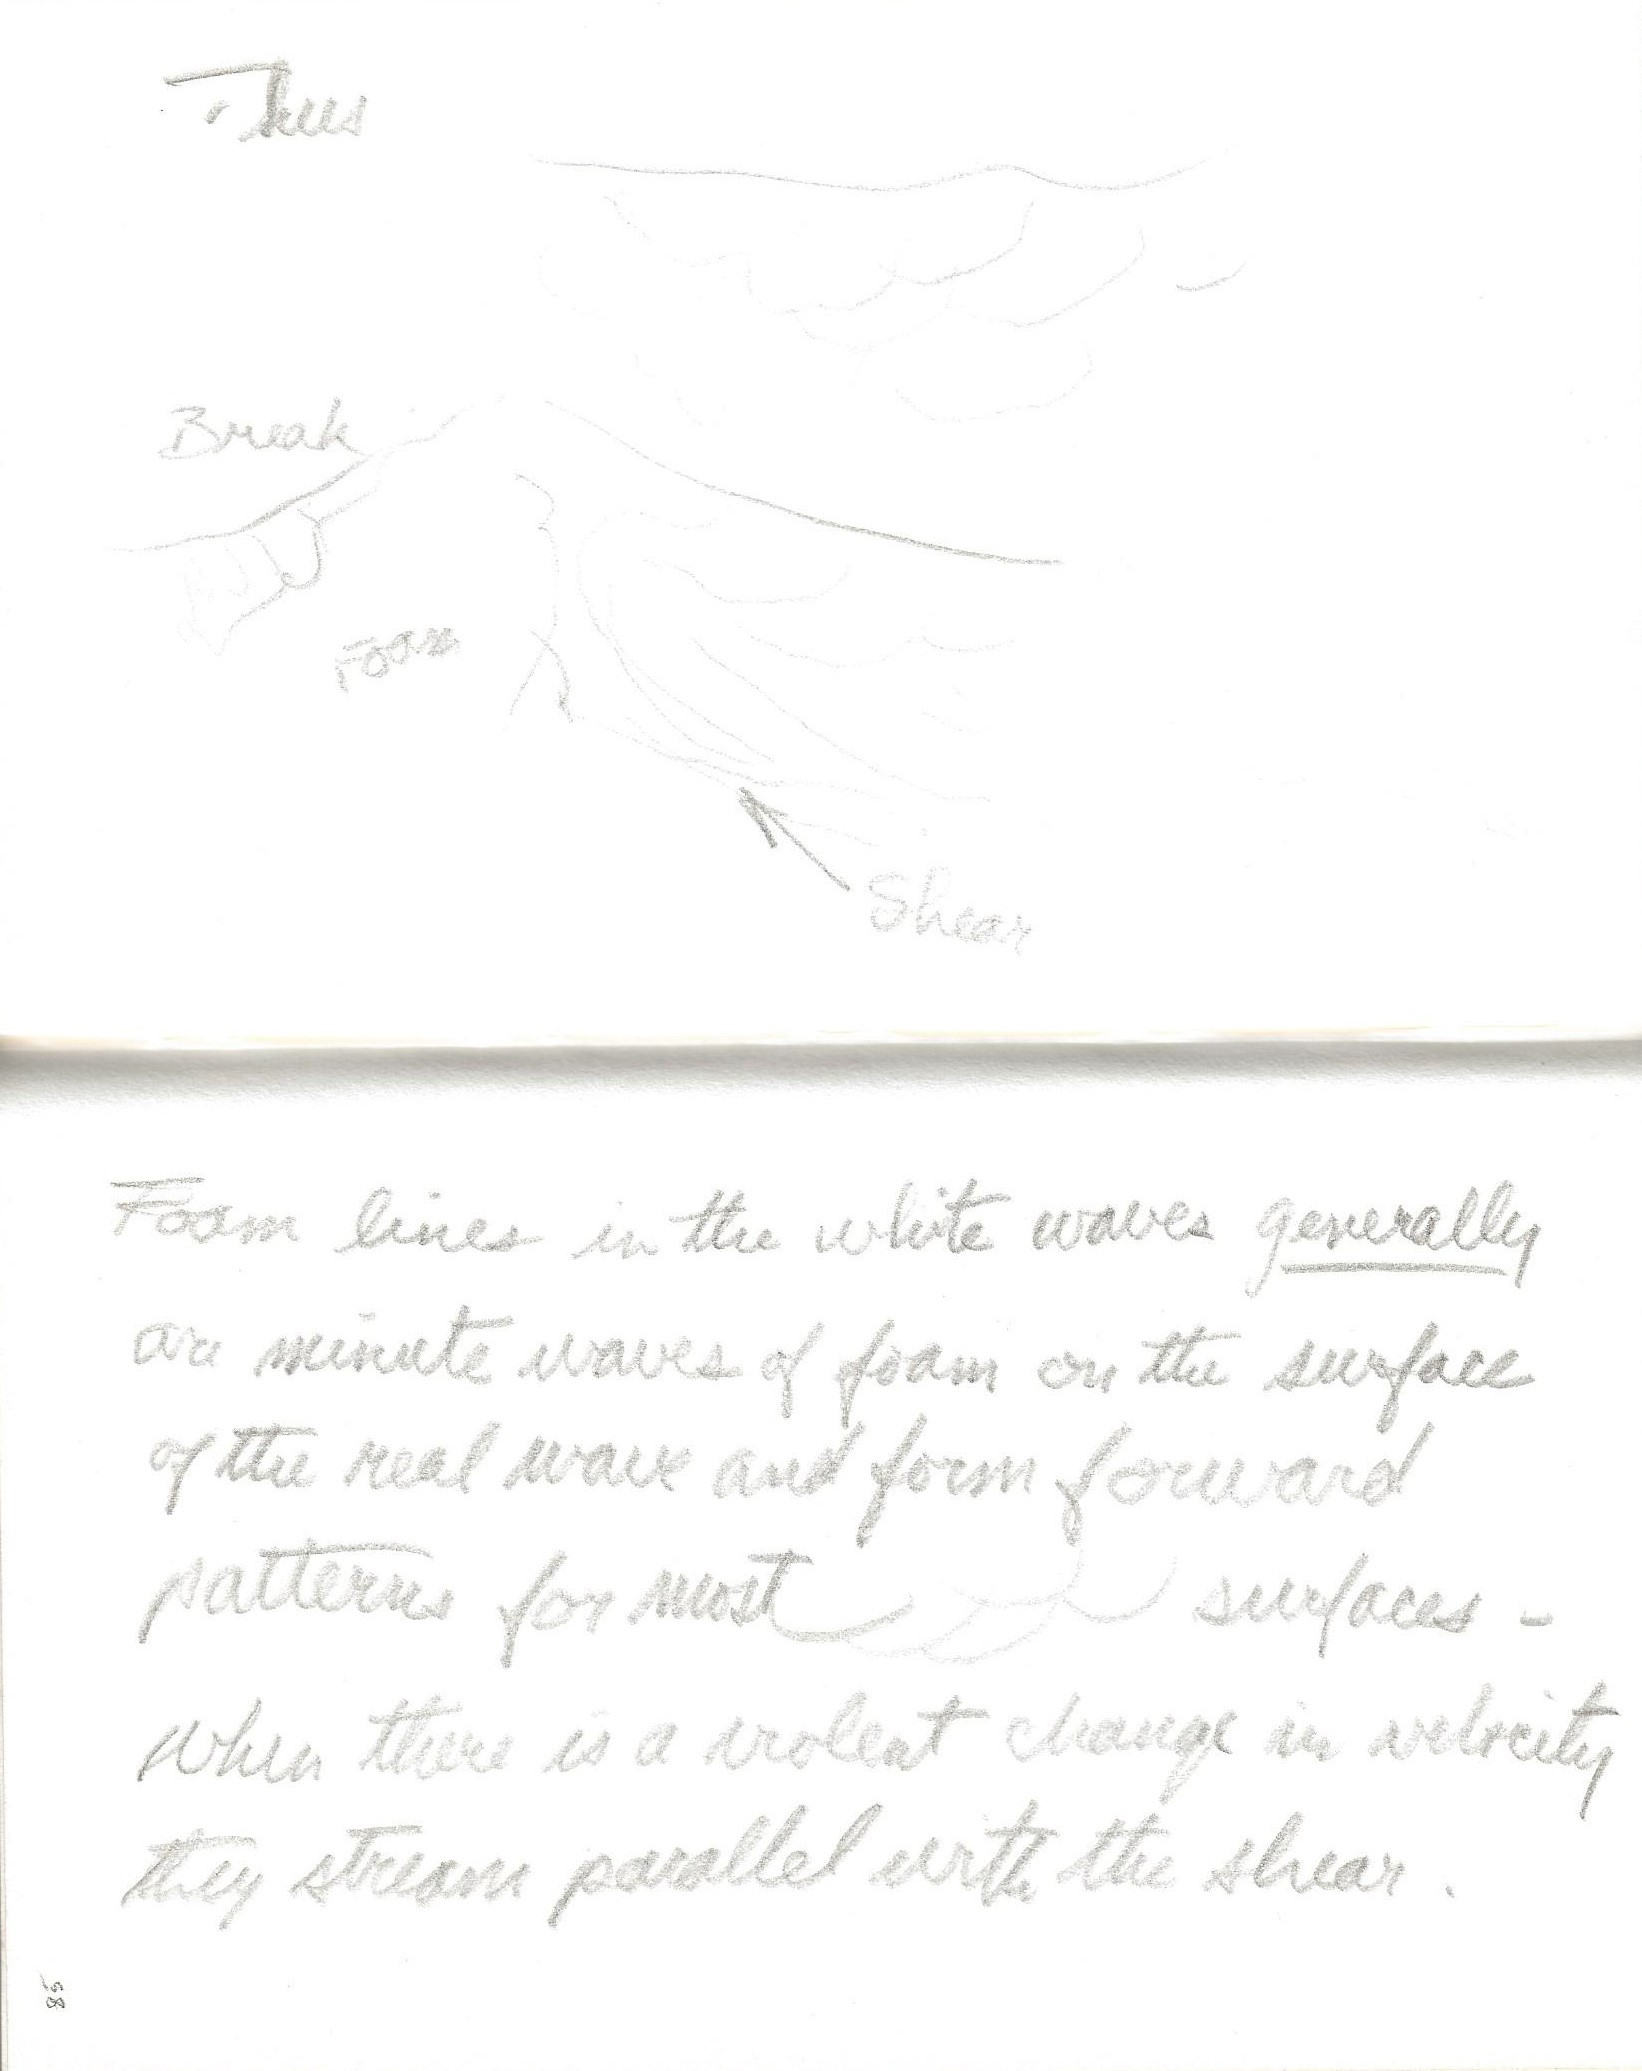 Thus
Break
Foam
Shear
Foam lines in the white waves generally
are minute waves of foam on the surface
of the real wave and form forward
patterns for most surfaces -
when there is a violent change in velocity
they stream parallel with the shear.
58